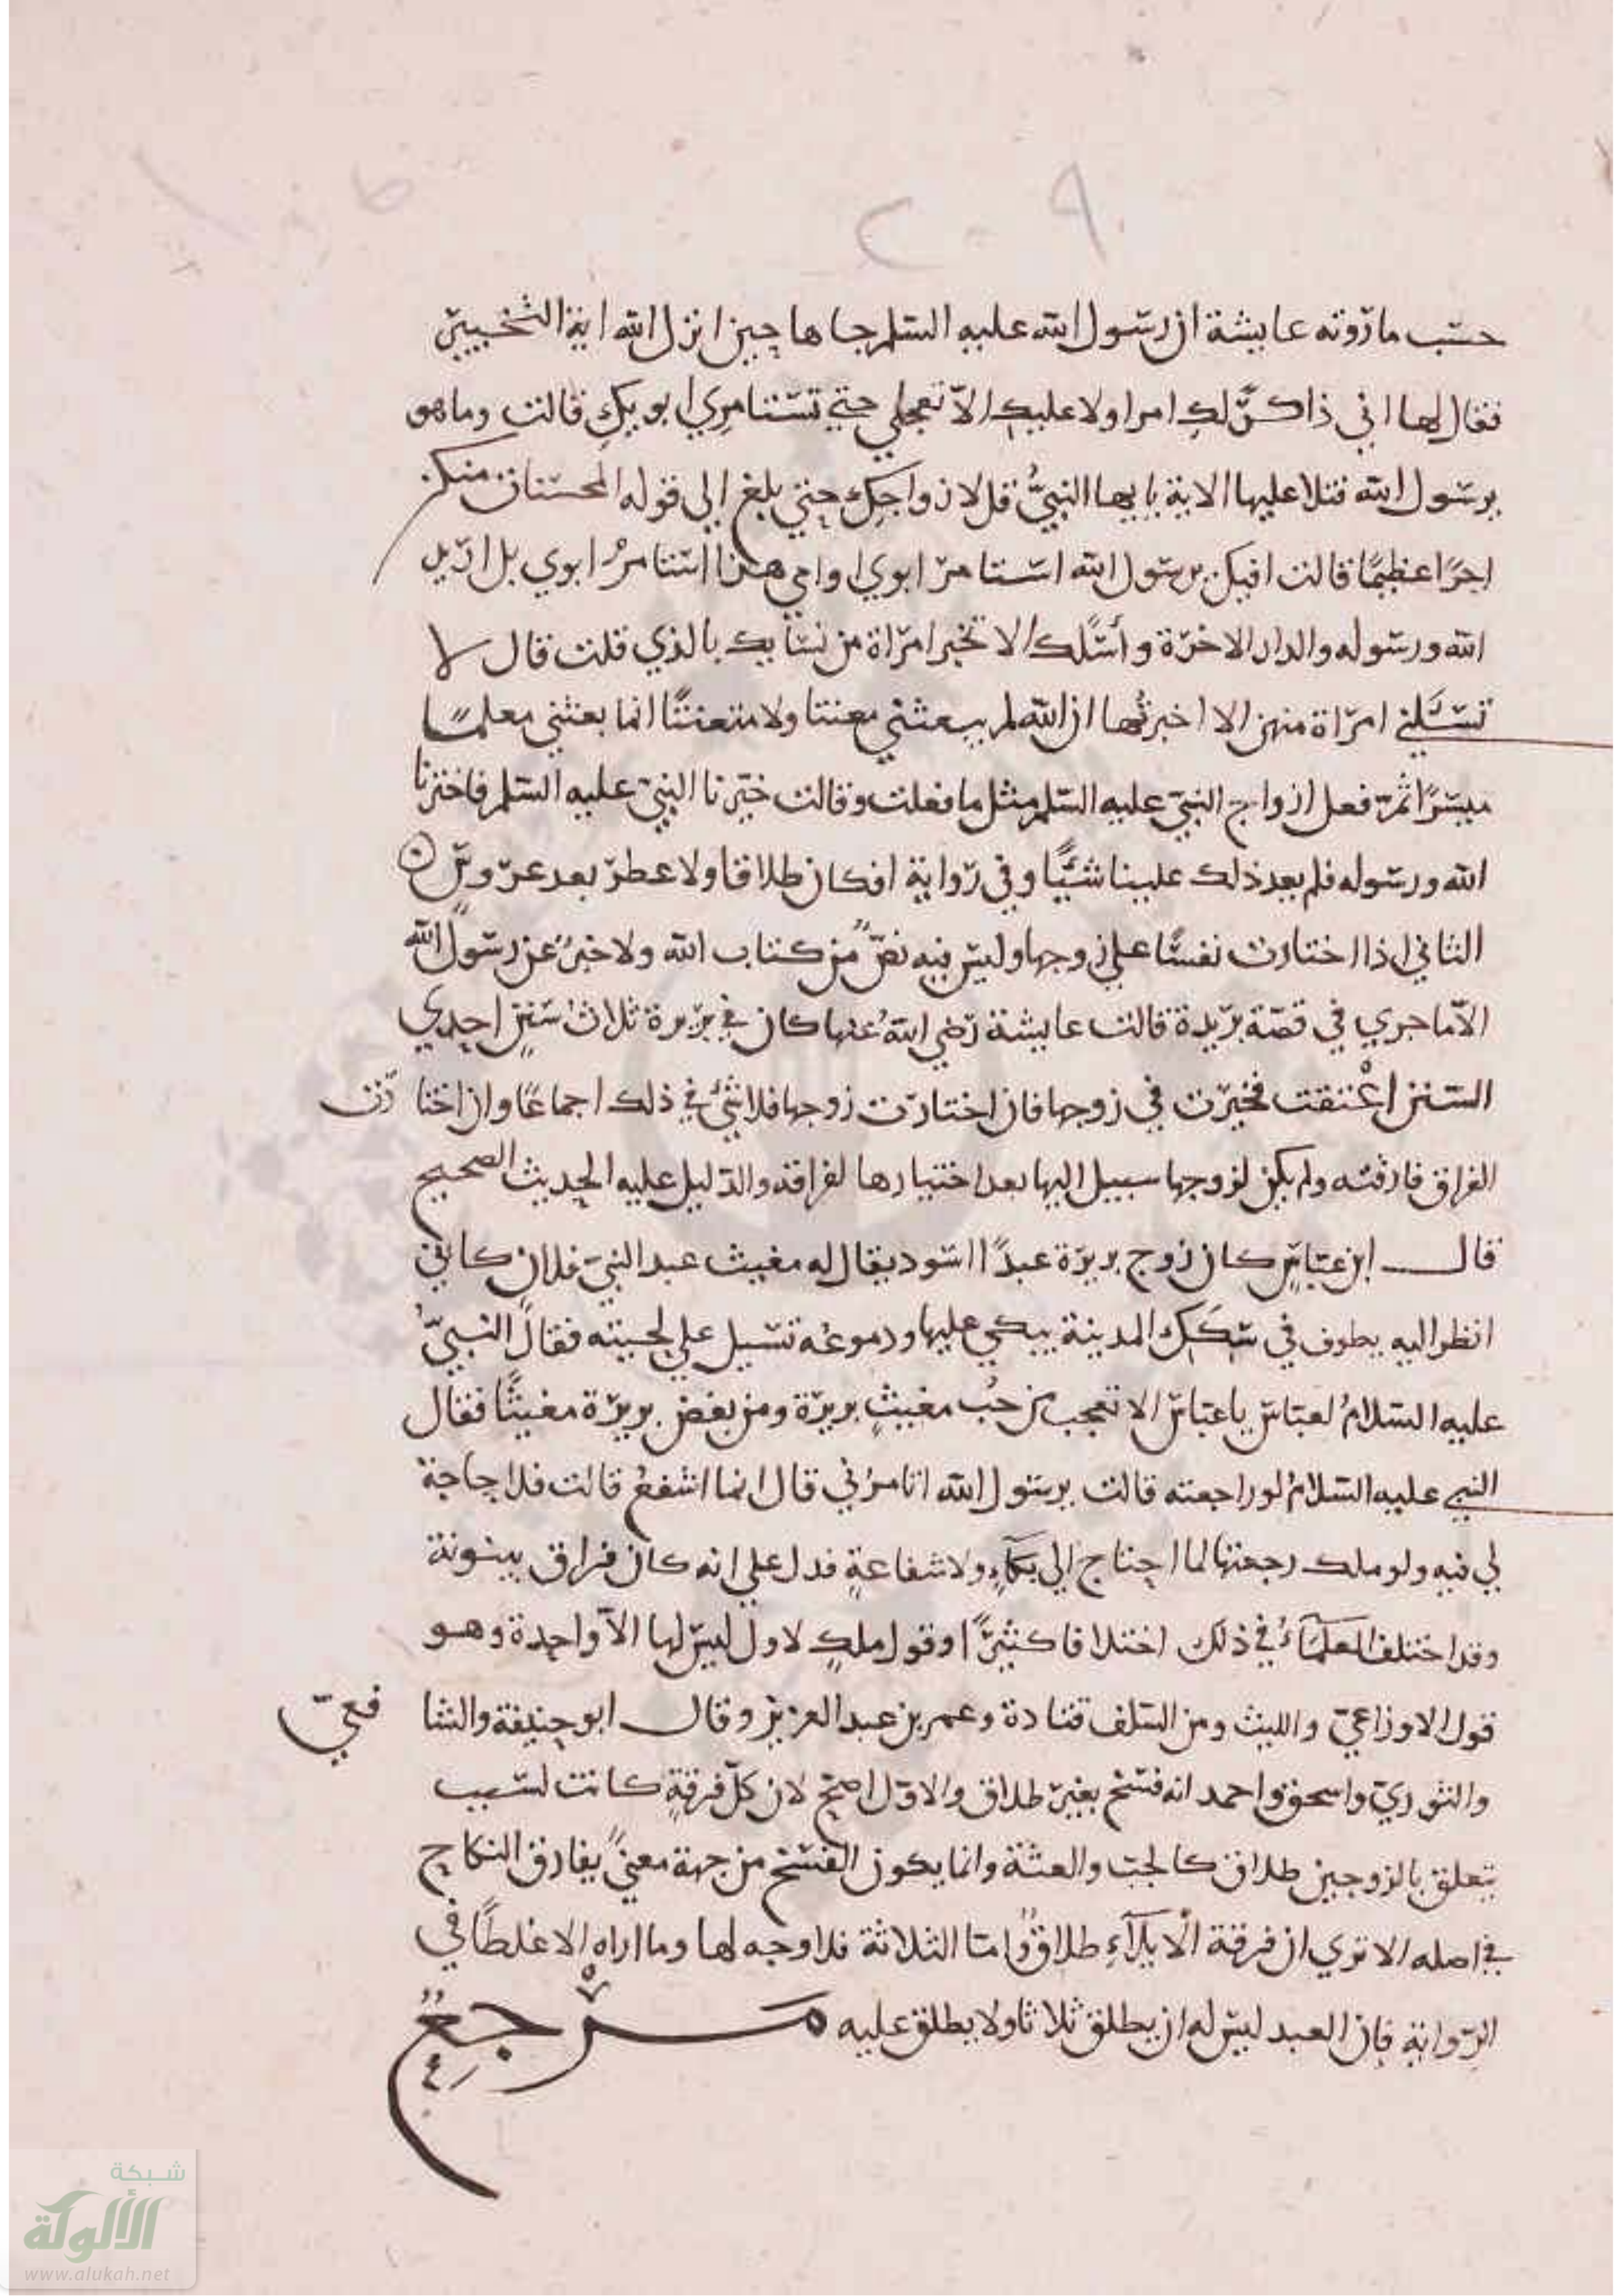 حسب ما روته عايشة ان رسول الله عليه السلم جاها حين انزل الله اية التخيير
فقال لها اني ذاكر لك امرا ولا عليك الا تعجلي حتي تستامري ابويك قالت وما هو
يرسول الله فتلا عليها الاية يايها النبيُّ قل لازواجك حتي بلغ الي قوله المحسنات منكن
اجرًا عظيمًا قالت افيك يرسول الله استامر ابوي او امي هذا استامرُ ابوي بل اريد
الله ورسوله والدار الاخرة وأسْلك الا تخبر امراة من نسايك بالذي قلت قال لا
تسَلني امراة منهن الا اخبرتُها ان الله لم يبعثني معنتا ولا متعنتًا انما بعثني معلمًا
ميسرًا ثمّ فعل ازواج النبي عليه السلم مثل ما فعلت وقالت خيرنا النبي عليه السلم فاخترنا
الله ورسوله فلم يعد ذلك علينا شيًّا وفي رواية افكان طلاقا ولا عطر بعد عروس
الثاني اذا اختارت نفسًا علي زوجها وليس فيه نصٌّ من كتاب الله ولا خبرٌ عن رسول الله
الا ما جري في قصة بريدة قالت عايشة رضي اللهُ عنها كان في بريرة ثلاثُ سَننٍ احدي
السنن اعْتقت فخيرت في زوجها فان اختارت زوجها فلا شيْ في ذلك اجماعًا وان اختارت
الفراق فارقته ولم يكن لزوجها سبيل اليها بعد اختيارها لفراقه والدليل عليه الحديث الصحيح
قال ابن عباسٍ كان زوج بريرة عبدًا اسود يقال له مغيث عبد النبي فلان كاني
انظر اليه يطوف في سَكك المدينة يبكي عليها ودموعُه تسيل علي لحيته فقال النبيُّ
عليه السلامُ لعباس يا عباس الا تعجب من حُب مغيثٍ بريرة ومن بغض بريرة مغيثًا فقال
النبي عليه السلامُ لو راجعته قالت يرسول الله اتامرُني قال انما اشفعُ قالت فلا حاجة
لي فيه ولو ملك رجعتها لما احتاج الي بكآءٍ ولا شفاعةٍ فدل علي انه كان فراق بينونة
وقد اختلف العلمَآءُ في ذلك اختلافا كثيرًا وقول ملكٍ لاول ليس لها الا واحدة وهو
قول الاوزاعي والليث ومن السلف قتادة وعمر بن عبد العزيز وقال ابو حنيفة والشافعي
والثوري واسحق واحمد انه فسخ بغير طلاق والاول اصح لان كل فرقةٍ كانت لسبب
يتعلق بالزوجين طلاق كالجب والعنة وانما يكون الفسخ من جهة معنيً يفارق النكاح
في اصله الا تري ان فرقة الايلآءِ طلاقٌ وامّا الثلاثة فلا وجه لها وما اراه الا غلطًا في
الرواية فان العبد ليس له ان يطلق ثلاثا ولا يطلق عليه مرجعٌ
شبكة
الألوكة
www.alukah.net